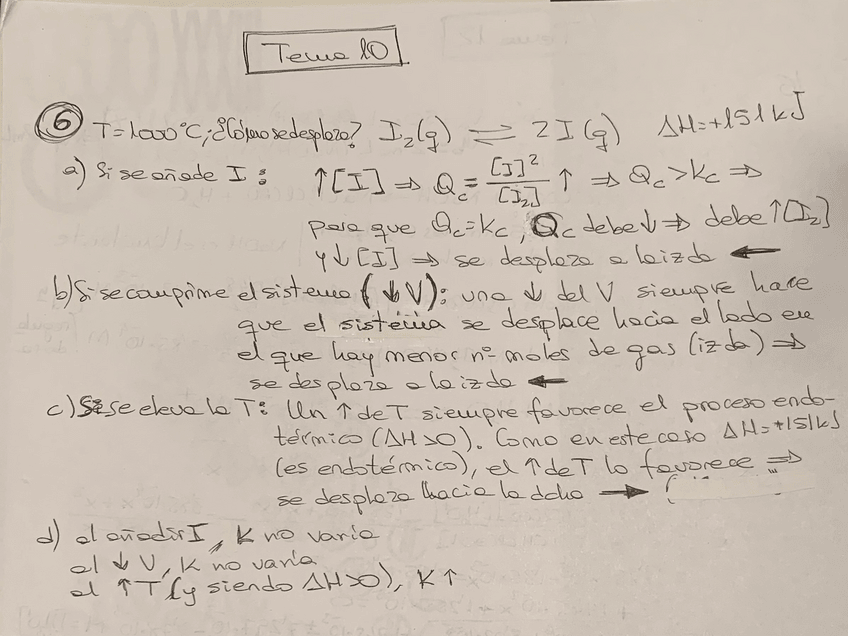 Tema 10
⑥ T=1000°C; ¿Cómo se desplaza? I₂(g) ⇌ 2I(g) ΔH=+151kJ
a) Si se añade I: ↑[I] ⇒ Qc = [I]²/[I₂] ↑ ⇒ Qc > Kc ⇒
para que Qc=Kc, Qc debe ↓ ⇒ debe ↑[I₂]
y ↓[I] ⇒ se desplaza a la izda ←
b) Si se comprime el sistema (↓V): una ↓ del V siempre hace
que el sistema se desplace hacia el lado en
el que hay menor nº moles de gas (izda) ⇒
se desplaza a la izda ←
c) Si se eleva la T: Un ↑ de T siempre favorece el proceso endo-
térmico (ΔH>0). Como en este caso ΔH=+151kJ
(es endotérmico), el ↑ de T lo favorece ⇒
se desplaza hacia la dcha →
d) al añadir I, K no varía
al ↓ V, K no varía
al ↑ T (y siendo ΔH>0), K ↑